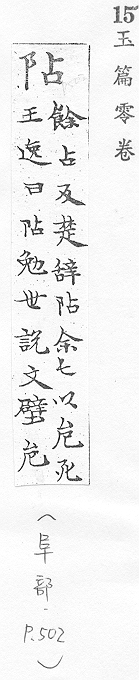 15
玉篇零卷
阽
餘占及楚辞阽余七以危死
王逸曰阽勉世説文壁危
（阜部.P.502）